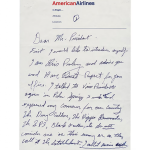 AmericanAirlines
Dear Mr. President
First I would like to introduce myself.
I am Elvis Presley and admire you
and Have Great Respect for your
office. I talked to Vice President
Agnew in Palm Springs
expressed my concern for our country.
The Drug Culture, The Hippie Elements,
The SDS, Black Panthers, etc do not
consider me as their enemy or as they
call it the Establishment. I call it America and